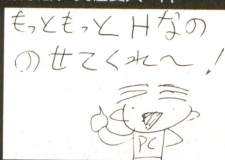 もっともっとHなの
のせてくれ〜!
PC